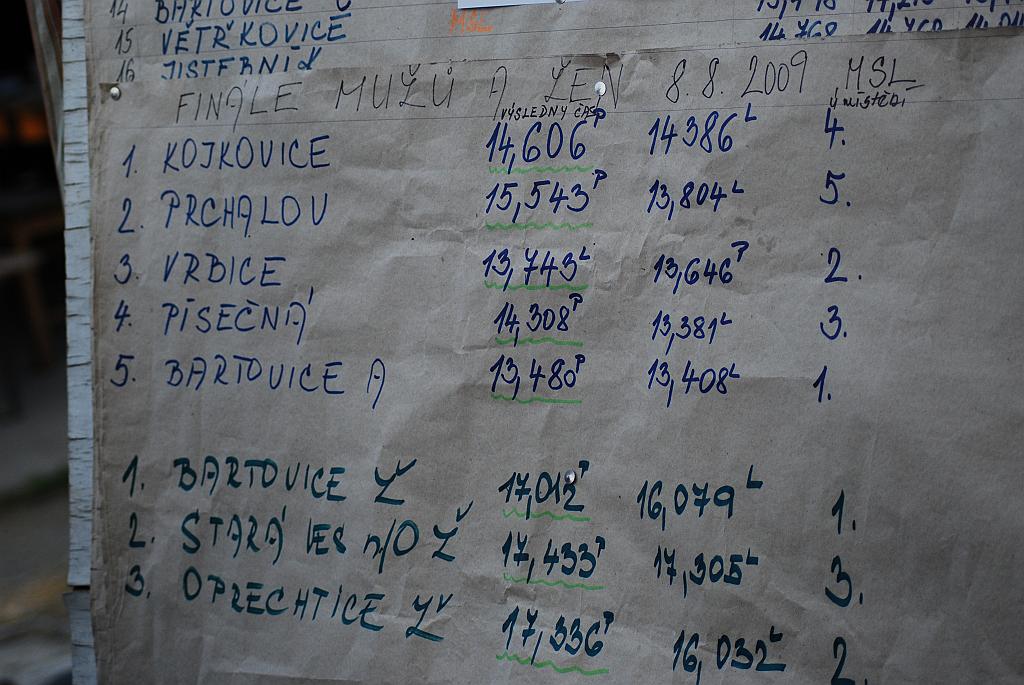 14 BARTOVICE
15 VĚTŘKOVICE 14,768
16 JISTEBNÍK
FINÁLE MUŽŮ A ŽEN 8.8.2009 MSL
VÝSLEDNÝ ČAS UMÍSTĚNÍ
1. KOJKOVICE 14,606P 14386L 4.
2. PRCHALOV 15,543P 13,804L 5.
3. VRBICE 13,743L 13,646P 2.
4. PÍSEČNÁ 14,308P 13,381L 3.
5. BARTOVICE A 13,480P 13,408L 1.
1. BARTOVICE Ž 17,012P 16,079L 1.
2. STARÁ VES n/O Ž 17,433P 17,305L 3.
3. OPRECHTICE Ž 17,336P 16,032L 2.